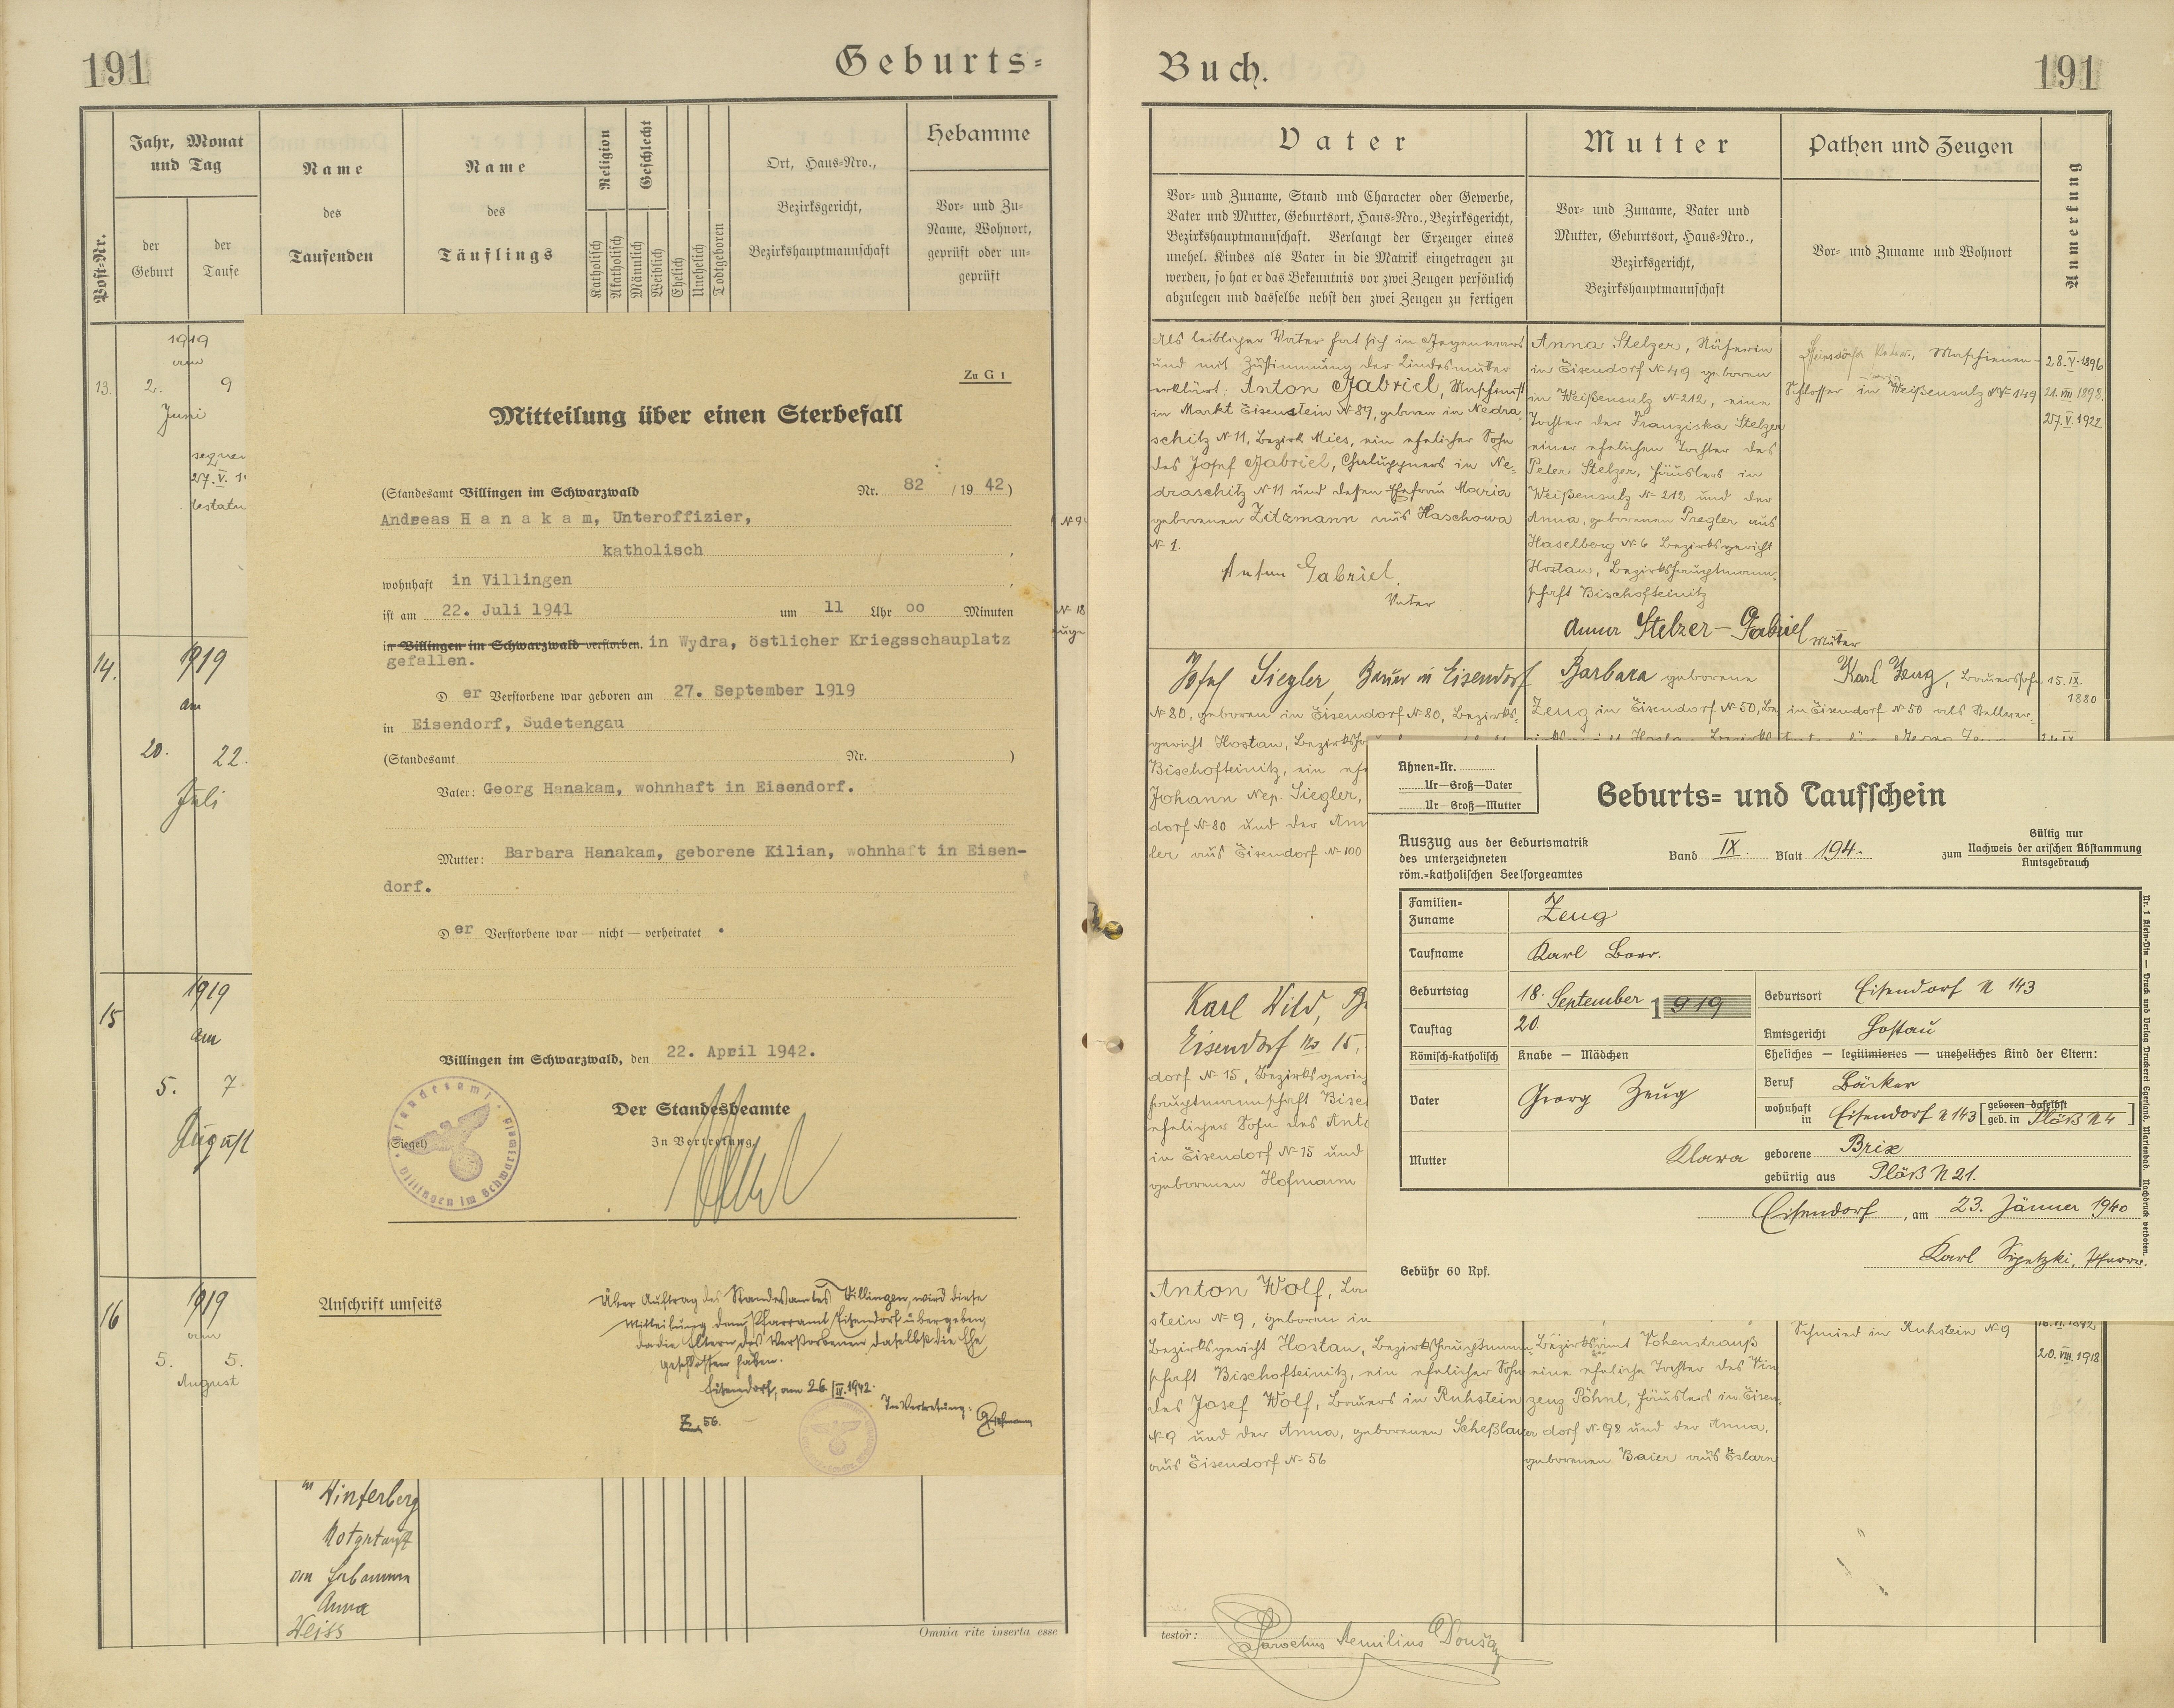 191
Geburts=
Post-Nr.
Jahr, Monat
und Tag
der
Geburt
der
Taufe
Name
des
Taufenden
Name
des
Täuflings
Religion
Katholisch
Akatholisch
Geschlecht
Männlich
Weiblich
Ehelich
Unehelich
Todtgeboren
Ort, Haus-Nro.,
Bezirksgericht,
Bezirkshauptmannschaft
Hebamme
Vor- und Zu-
Name, Wohnort,
geprüft oder un-
geprüft
13.
1919
am
2. 9
Juni
27. V. 1
14.
1919
am
20. 22.
Juli
15
1919
am
5. 7
August
16
1919
am
5. 5.
August
Winterberg
Notgetauft
Anna
Weiss
Omnia rite inserta esse
Zu G 1
Mitteilung über einen Sterbefall
(Standesamt Villingen im Schwarzwald Nr. 82 / 19 42)
Andreas Hanakam, Unteroffizier,
katholisch
wohnhaft in Villingen
ist am 22. Juli 1941 um 11 Uhr oo Minuten
in Villingen im Schwarzwald verstorben. in Wydra, östlicher Kriegsschauplatz
gefallen.
D er Verstorbene war geboren am 27. September 1919
in Eisendorf, Sudetengau
(Standesamt Nr. )
Vater: Georg Hanakam, wohnhaft in Eisendorf.
Mutter: Barbara Hanakam, geborene Kilian, wohnhaft in Eisen-
dorf.
D er Verstorbene war — nicht — verheiratet .
Villingen im Schwarzwald, den 22. April 1942.
Der Standesbeamte
In Vertretung
(Siegel)
Standesamt
Villingen im Schwarzwald
Anschrift umseits
Über Auftrag des Standesamtes Villingen, wird diese
Mitteilung dem Pfarramt Eisendorf übergeben,
da die Eltern des Verstorbenen daselbst die Ehe
geschlossen haben.
Eisendorf, am 26. IV. 1942.
In Vertretung:
Z. 56.
Buch.
191
Vater
Vor- und Zuname, Stand und Character oder Gewerbe,
Vater und Mutter, Geburtsort, Haus-Nro., Bezirksgericht,
Bezirkshauptmannschaft. Verlangt der Erzeuger eines
unehel. Kindes als Vater in die Matrik eingetragen zu
werden, so hat er das Bekenntnis vor zwei Zeugen persönlich
abzulegen und dasselbe nebst den zwei Zeugen zu fertigen
Mutter
Vor- und Zuname, Vater und
Mutter, Geburtsort, Haus-Nro.,
Bezirksgericht,
Bezirkshauptmannschaft
Pathen und Zeugen
Vor- und Zuname und Wohnort
Anmerkung
Als leiblicher Vater hat sich in Gegenwart
und mit Zustimmung der Kindesmutter
erklärt: Anton Gabriel, Maschinist
in Markt Eisenstein N 89, geboren in Nedra-
schitz N 11, Bezirk Mies, ein ehelicher Sohn
des Josef Gabriel, Chaluppners in Ne-
draschitz N 11 und dessen Ehefrau Maria
geborenen Zitzmann aus Haschowa
N 1.
Anton Gabriel
Vater
Anna Stelzer, Näherin
in Eisendorf N 49 geboren
in Weißensulz N 212, eine
Tochter der Franziska Stelzer
einer ehelichen Tochter des
Peter Stelzer, Häuslers in
Weißensulz N 212 und der
Anna, geborenen Pregler aus
Haselberg N 6 Bezirksgericht
Hostau, Bezirkshauptmann-
schaft Bischofteinitz
Anna Stelzer - Gabriel
Mutter
Maschienen-
Schlosser in Weißensulz N 149
28. V. 1896
21. VIII 1898.
27. V. 1922
Josef Siegler, Bauer in Eisendorf
N 80, geboren in Eisendorf N 80, Bezirks-
gericht Hostau, Bezirksh
Bischofteinitz, ein ehe
Johann Nep. Siegler,
dorf N 80 und der Ann
ler aus Eisendorf N 100
Barbara geborene
Zeug in Eisendorf N 50, Be
Karl Zeug, Bauerssohn
in Eisendorf N 50 als Stellver-
15. IX.
1880
Karl Wild, B
Eisendorf No 15,
dorf N 15, Bezirksgeric
hauptmannschaft Bisc
ehelicher Sohn des Anto
in Eisendorf N 15 und
geborenen Hofmann
Anton Wolf,
stein N 9, geboren in
Bezirksgericht Hostau, Bezirkshauptmann-
schaft Bischofteinitz, ein ehelicher Sohn
des Josef Wolf, Bauers in Ruhstein
N 9 und der Anna, geborenen Scheßlauer
aus Eisendorf N 56
Bezirksamt Vohenstrauß
eine eheliche Tochter des Vin
zenz Pöhnl, Häuslers in Eisen-
dorf N 98 und der Anna,
geborenen Baier aus Eslarn
Schmied in Ruhstein N 9
20. VIII. 1918
testor:
Parochus Aemilius
Ahnen-Nr.
Ur—Groß—Vater
Ur—Groß—Mutter
Geburts= und Taufschein
Auszug aus der Geburtsmatrik
des unterzeichneten
röm.-katholischen Seelsorgeamtes
Band IX. Blatt 194.
Gültig nur
zum Nachweis der arischen Abstammung
Amtsgebrauch
Familien=
Zuname
Zeug
Taufname
Karl Borr.
Geburtstag
18. September 1919
Geburtsort Eisendorf N 143
Tauftag
20.
Amtsgericht Hostau
Römisch-katholisch
Knabe — Mädchen
Eheliches — legitimiertes — uneheliches Kind der Eltern:
Vater
Georg Zeug
Beruf Bäcker
wohnhaft in Eisendorf N 143 [geboren daselbst
geb. in Plöß N 4]
Mutter
Klara
geborene Brix
gebürtig aus Plöß N 21.
Eisendorf, am 23. Jänner 1940
Karl Sipetzki, Pfarrer.
Gebühr 60 Rpf.
Nr. 1 Klein-Din — Druck und Verlag Druckerei Egerland, Marienbad. Nachdruck verboten.